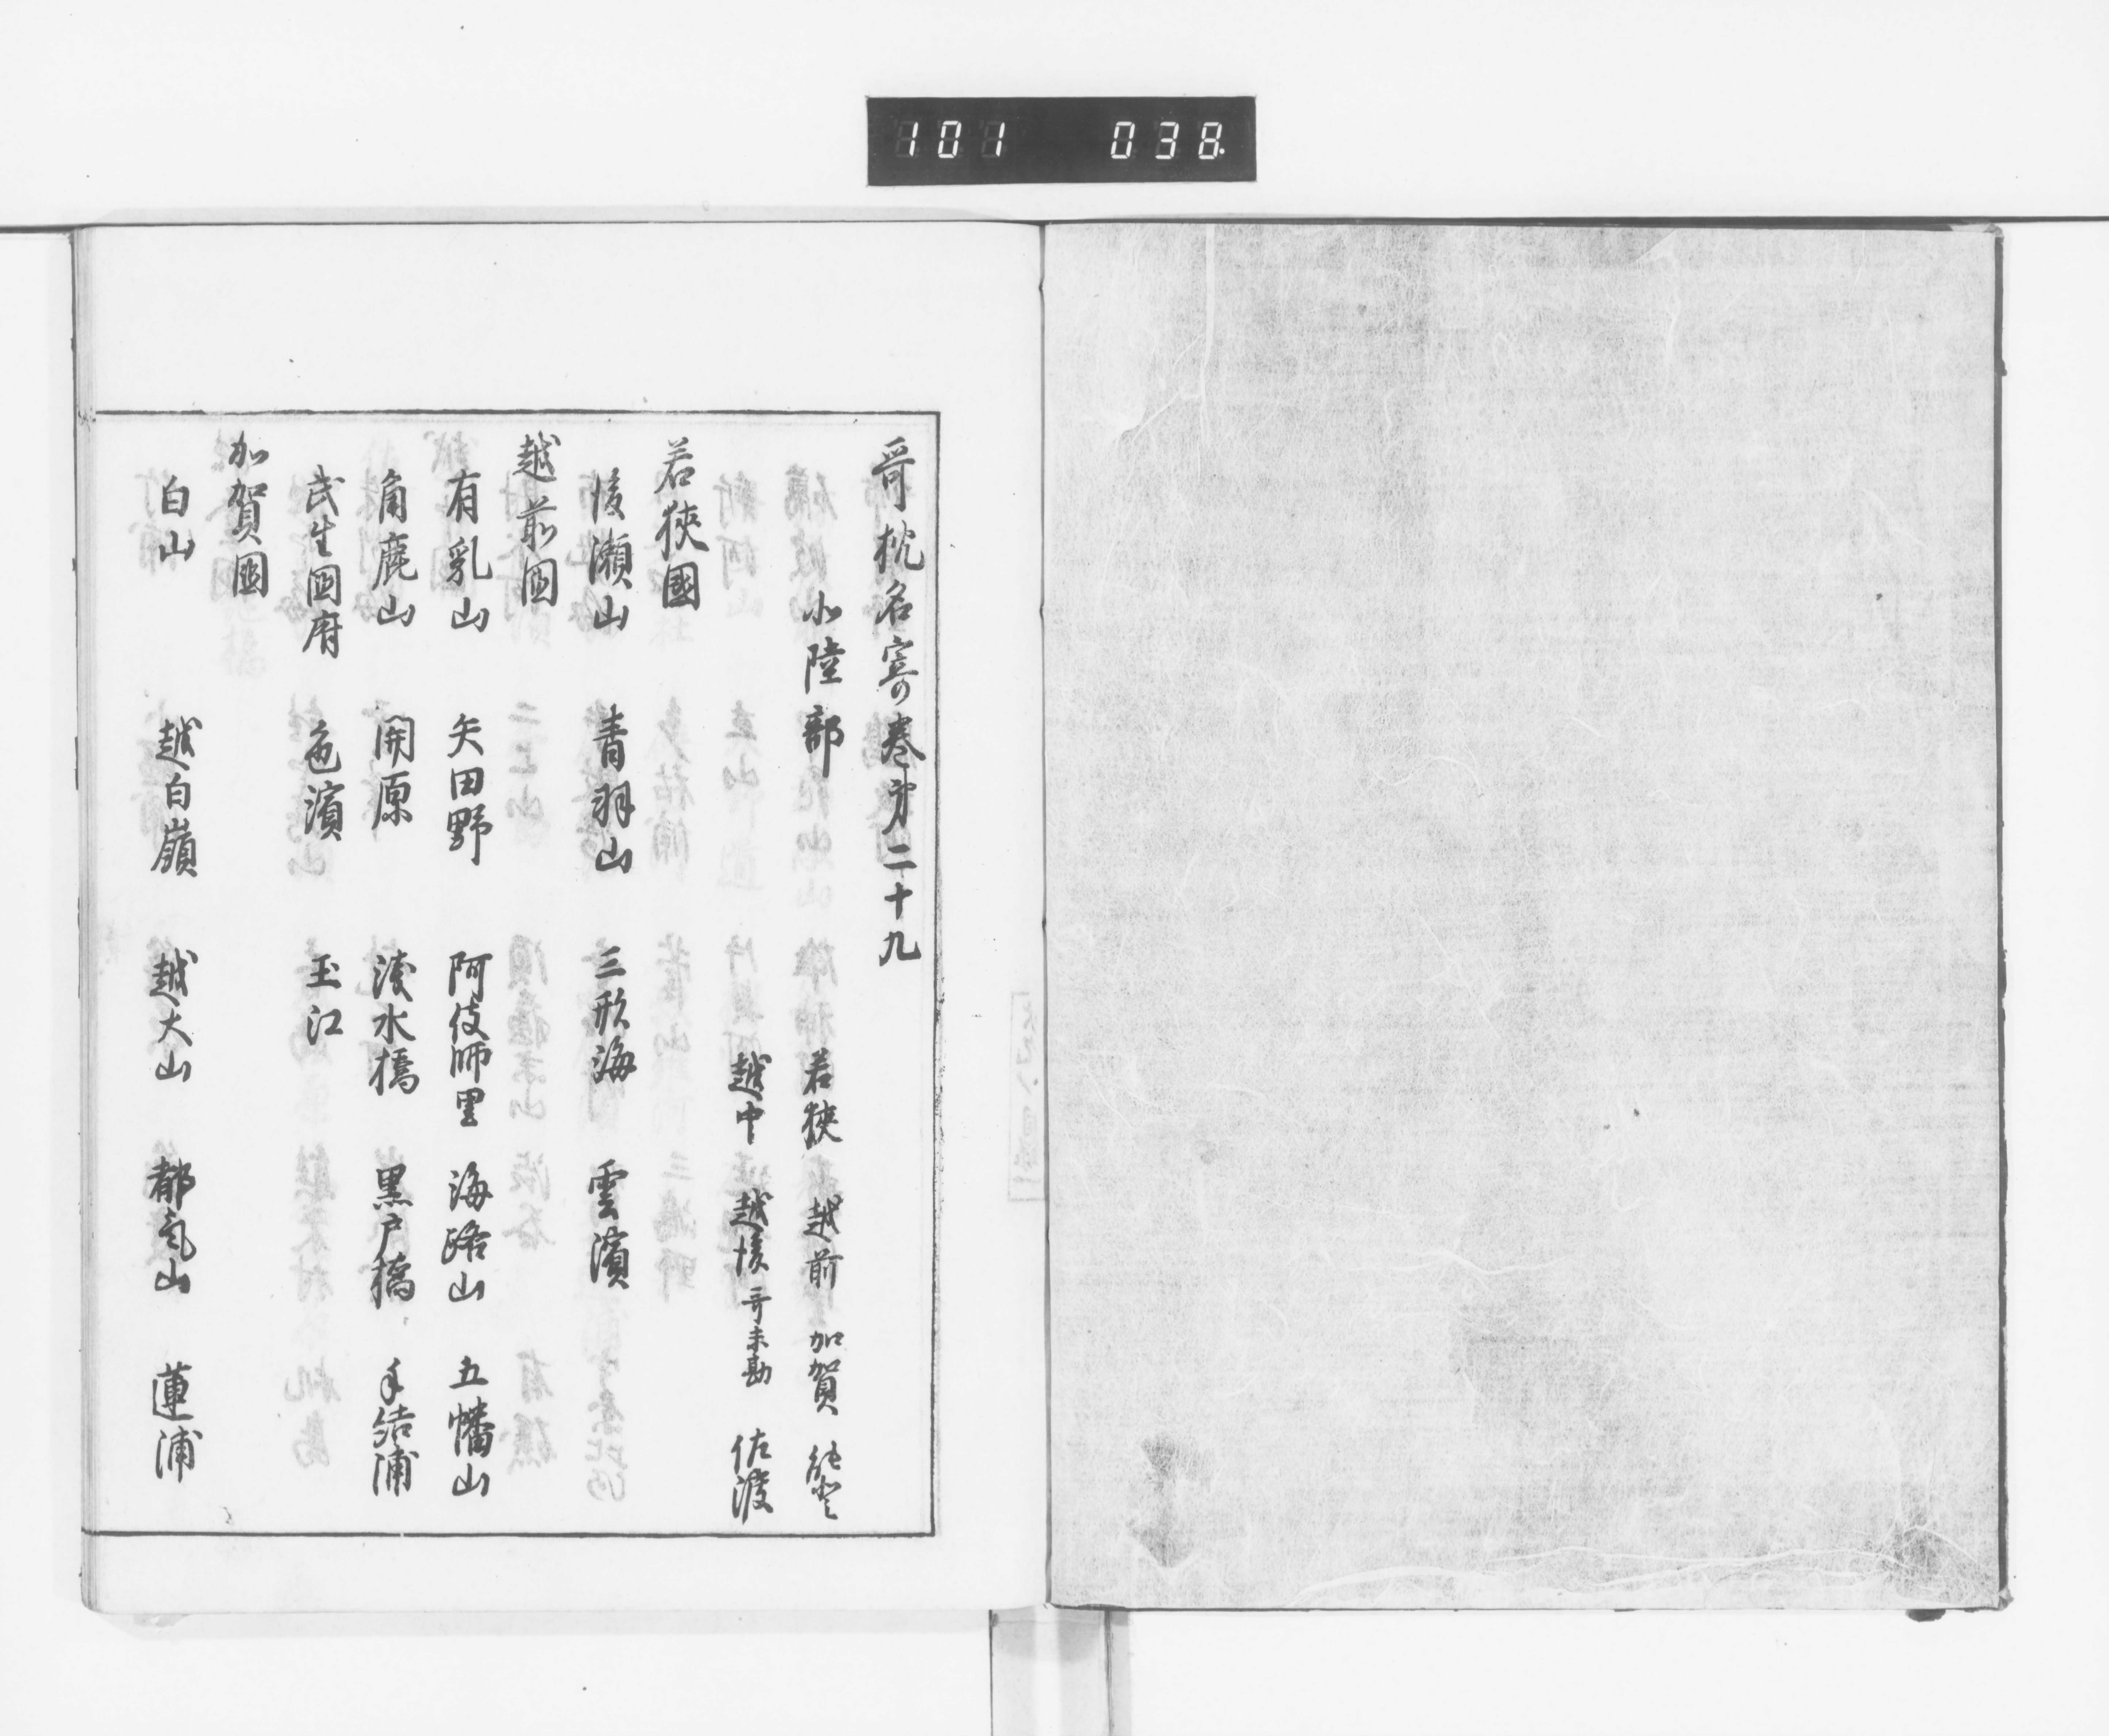 101 038
哥枕名寄巻第二十九
北陸部 若狹 越前 加賀 能登
越中 越後 哥未勘 佐渡
若狹國
後瀬山 青羽山 三形海 雲濱
越前國
有乳山 矢田野 阿伎師里 海路山 五幡山
角鹿山 開原 淺水橋 黒戸橋 手結浦
武生國府 色濱 玉江
加賀國
白山 越白嶺 越大山 都氣山 蓮浦